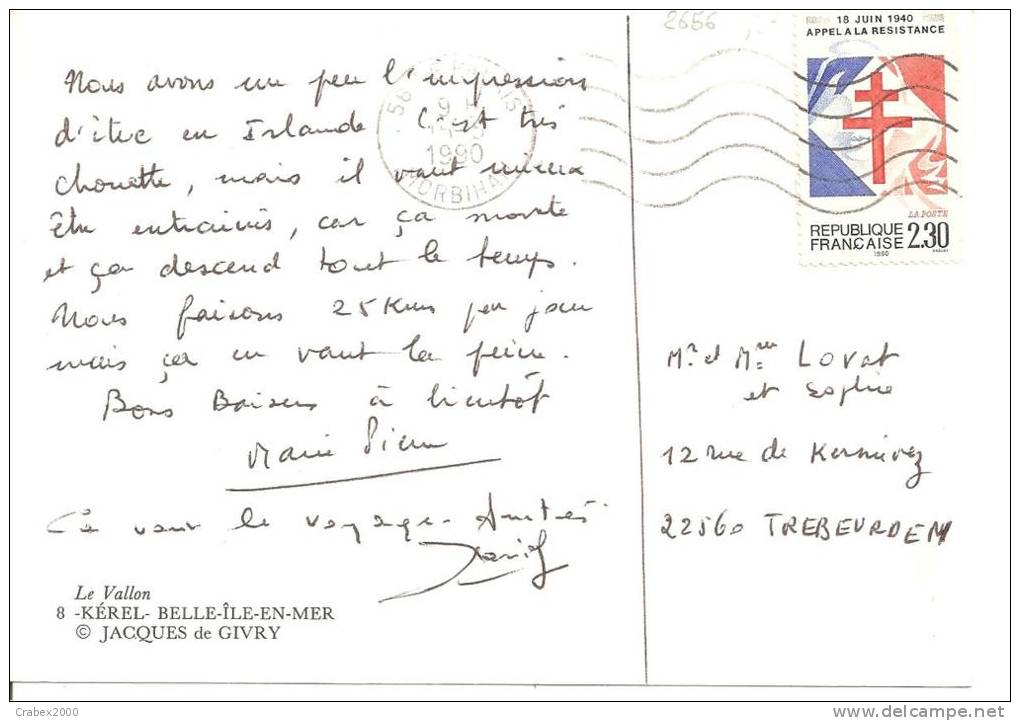 2656
18 JUIN 1940
APPEL A LA RESISTANCE
LA POSTE
REPUBLIQUE
FRANÇAISE 2.30
1990
56
9
1990
MORBIHAN
Nous avons un peu l'impression
d'être en Islande C'est très
chouette, mais il vaut mieux
être entrainés, car ça monte
et ça descend tout le temps.
Nous faisons 25 Kms par jour
mais ça en vaut la peine.
Bons Baisers à bientôt
Marie Pierre
Ça vaut le voyage. Amitiés.
Mr et Mme Lovat
et Sophie
12 rue de Kernévez
22560 TREBEURDEN
Le Vallon
8 -KÉREL- BELLE-ÎLE-EN-MER
© JACQUES de GIVRY
Crabex2000
delcampe.net